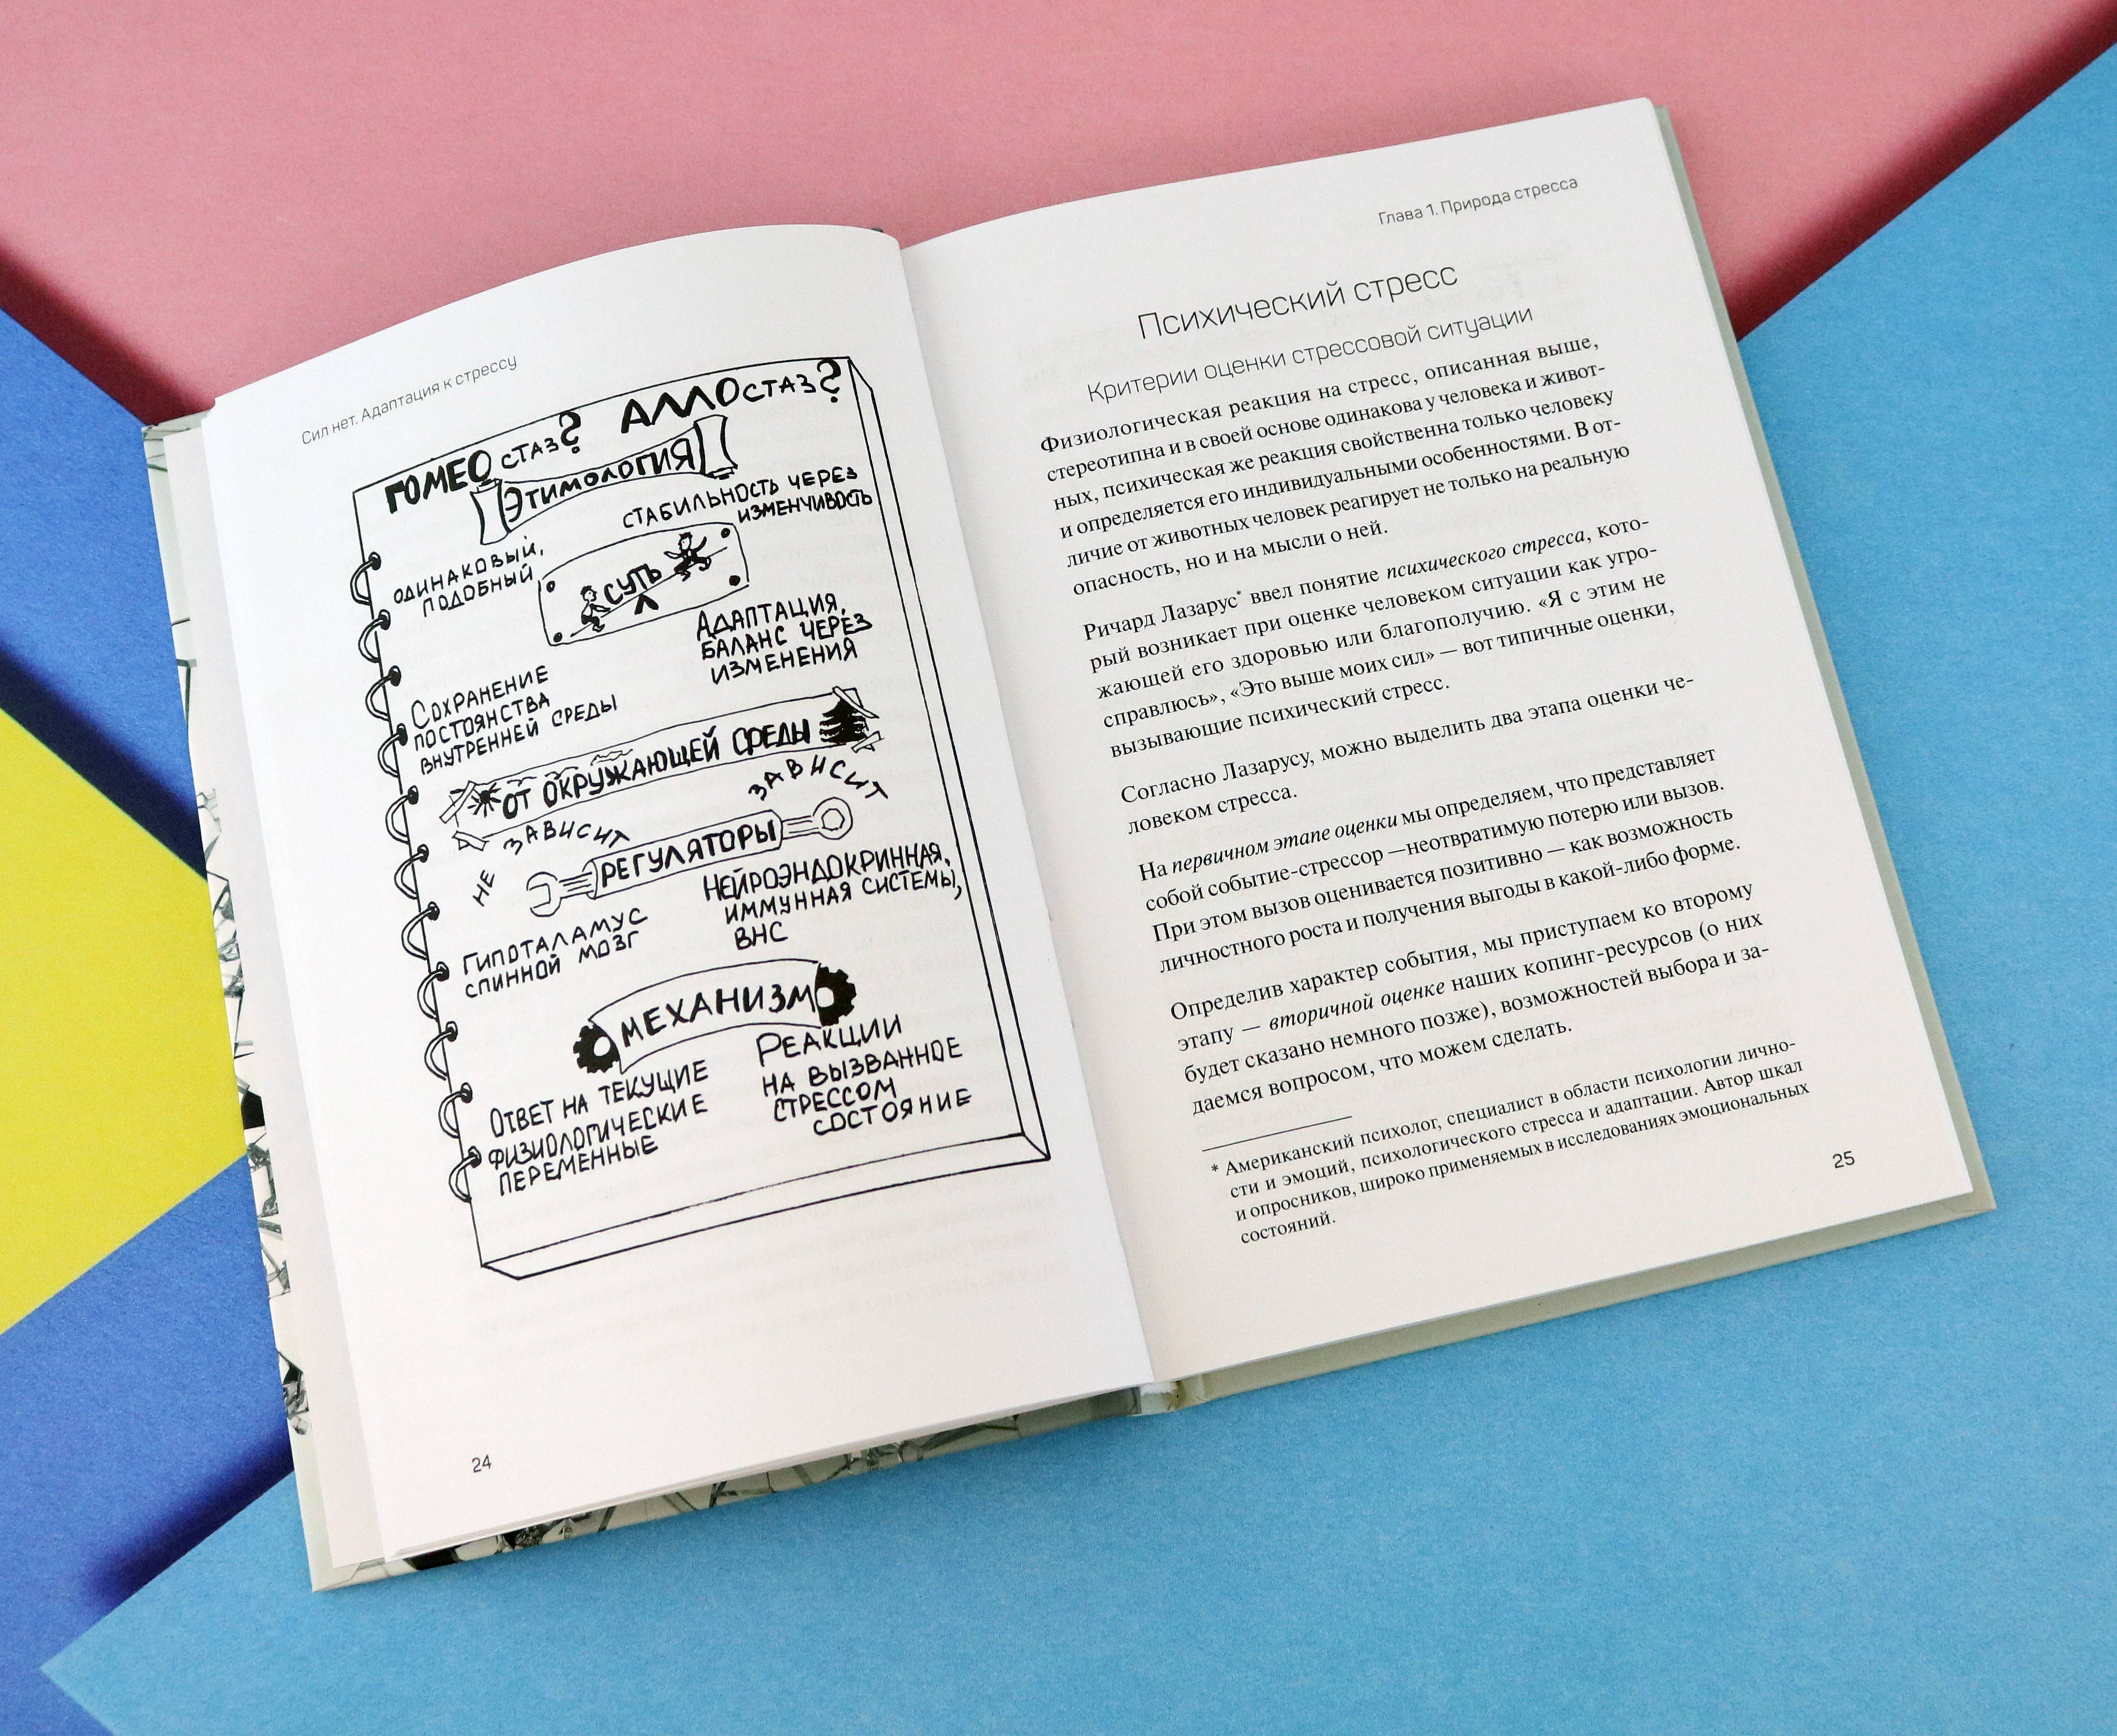 Сил нет. Адаптация к стрессу
ГОМЕОСТАЗ? АЛЛОСТАЗ?
ЭТИМОЛОГИЯ
ОДИНАКОВЫЙ,
ПОДОБНЫЙ
СТАБИЛЬНОСТЬ ЧЕРЕЗ
ИЗМЕНЧИВОСТЬ
СУТЬ
СОХРАНЕНИЕ
ПОСТОЯНСТВА
ВНУТРЕННЕЙ СРЕДЫ
АДАПТАЦИЯ,
БАЛАНС ЧЕРЕЗ
ИЗМЕНЕНИЯ
ОТ ОКРУЖАЮЩЕЙ СРЕДЫ
НЕ ЗАВИСИТ
ЗАВИСИТ
РЕГУЛЯТОРЫ
ГИПОТАЛАМУС
СПИННОЙ МОЗГ
НЕЙРОЭНДОКРИННАЯ,
ИММУННАЯ СИСТЕМЫ,
ВНС
МЕХАНИЗМ
ОТВЕТ НА ТЕКУЩИЕ
ФИЗИОЛОГИЧЕСКИЕ
ПЕРЕМЕННЫЕ
РЕАКЦИИ
НА ВЫЗВАННОЕ
СТРЕССОМ
СОСТОЯНИЕ
24
Глава 1. Природа стресса
Психический стресс
Критерии оценки стрессовой ситуации
Физиологическая реакция на стресс, описанная выше,
стереотипна и в своей основе одинакова у человека и живот-
ных, психическая же реакция свойственна только человеку
и определяется его индивидуальными особенностями. В от-
личие от животных человек реагирует не только на реальную
опасность, но и на мысли о ней.
Ричард Лазарус* ввел понятие психического стресса, кото-
рый возникает при оценке человеком ситуации как угро-
жающей его здоровью или благополучию. «Я с этим не
справлюсь», «Это выше моих сил» — вот типичные оценки,
вызывающие психический стресс.
Согласно Лазарусу, можно выделить два этапа оценки че-
ловеком стресса.
На первичном этапе оценки мы определяем, что представляет
собой событие-стрессор —неотвратимую потерю или вызов.
При этом вызов оценивается позитивно — как возможность
личностного роста и получения выгоды в какой-либо форме.
Определив характер события, мы приступаем ко второму
этапу — вторичной оценке наших копинг-ресурсов (о них
будет сказано немного позже), возможностей выбора и за-
даемся вопросом, что можем сделать.
* Американский психолог, специалист в области психологии лично-
сти и эмоций, психологического стресса и адаптации. Автор шкал
и опросников, широко применяемых в исследованиях эмоциональных
состояний.
25